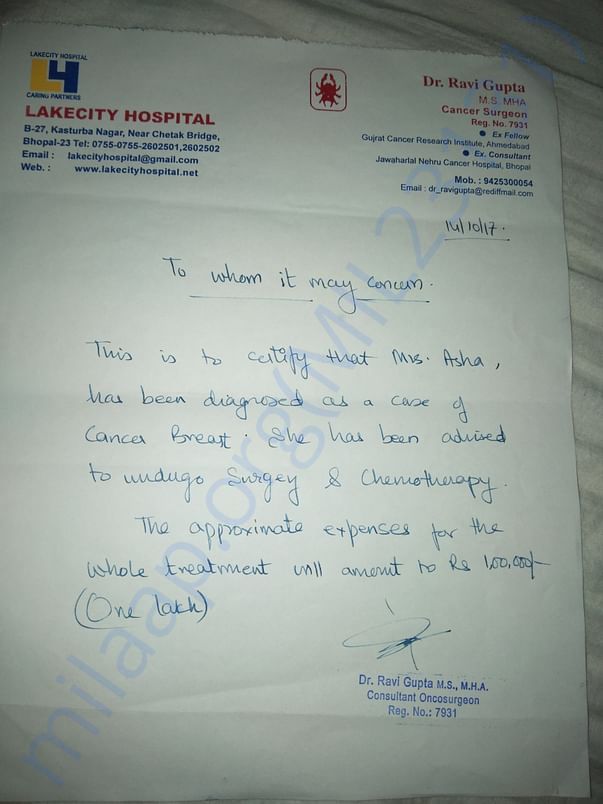 LAKECITY HOSPITAL
L4
CARING PARTNERS
LAKECITY HOSPITAL
B-27, Kasturba Nagar, Near Chetak Bridge,
Bhopal-23 Tel: 0755-0755-2602501,2602502
Email : lakecityhospital@gmail.com
Web. : www.lakecityhospital.net
Dr. Ravi Gupta
M.S. MHA
Cancer Surgeon
Reg. No. 7931
● Ex Fellow
Gujrat Cancer Research Institute, Ahmedabad
● Ex. Consultant
Jawaharlal Nehru Cancer Hospital, Bhopal
Mob. : 9425300054
Email : dr_ravigupta@rediffmail.com
14/10/17.
To whom it may concern.
This is to certify that Mrs. Asha,
has been diagnosed as a case of
Cancer Breast. She has been advised
to undergo Surgey & Chemotherapy.
The approximate expenses for the
whole treatment will amount to Rs 1,00,000/-
(One lakh)
Dr. Ravi Gupta M.S., M.H.A.
Consultant Oncosurgeon
Reg. No.: 7931
milaap.org(MIL23